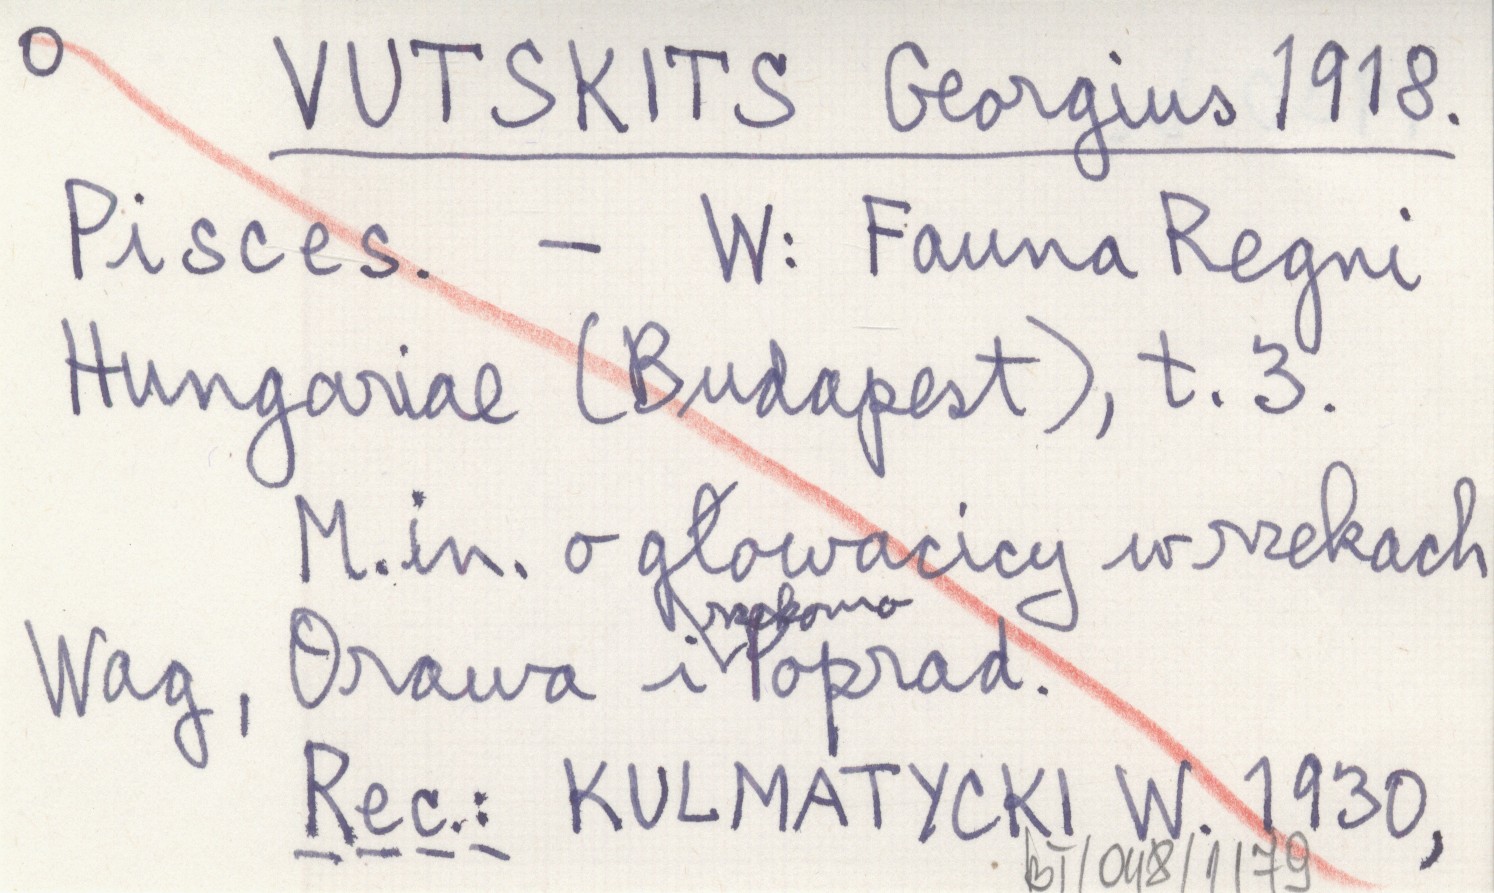 o VUTSKITS Georgius 1918.
Pisces. – W: Fauna Regni
Hungariae (Budapest), t. 3.
M.in. o głowacicy w rzekach
rzekomo
Wag, Orawa i Poprad.
Rec.: KULMATYCKI W. 1930,
BT/048/1179